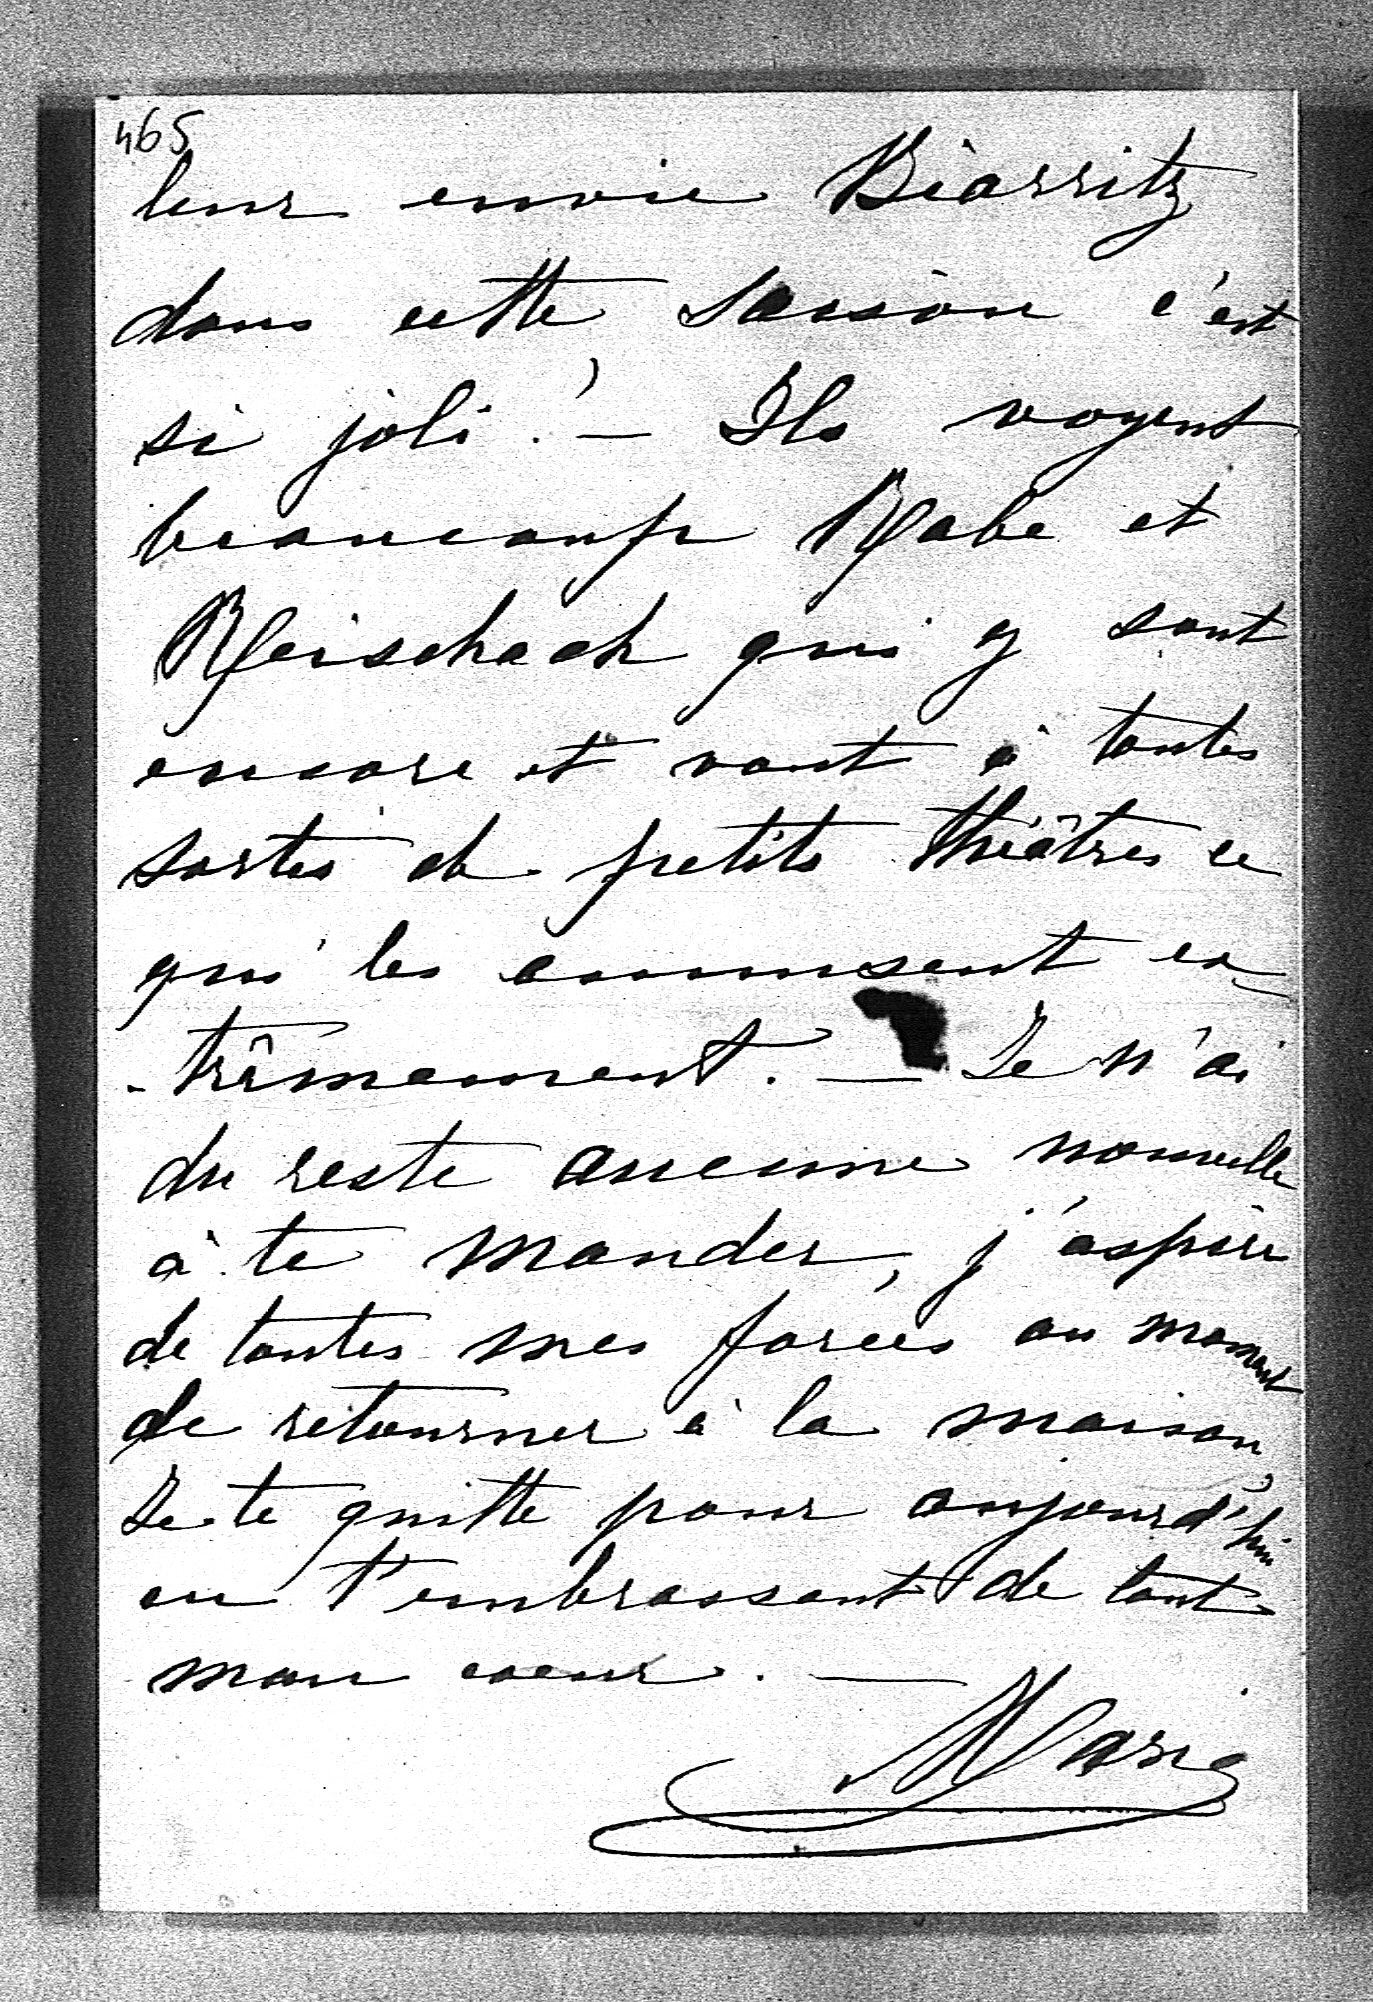 465
leur envie Biarritz
dans cette saison c'est
si joli ! — Ils voyent
beaucoup Rabe et
Reischach qui y sont
encore et vont à toutes
sortes de petits théâtres ce
qui les amusent ex-
-trêmement. — Je n'ai
du reste aucune nouvelle
à te mander, j'aspire
de toutes mes forces au moment
de retourner à la maison,
Je te quitte pour aujourd'hui
en t'embrassant de tout
mon coeur. —
Marie